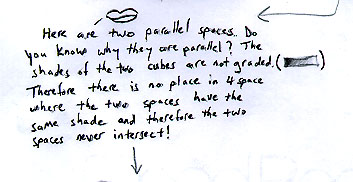 Here are two parallel spaces. Do
you know why they are parallel? The
shades of the two cubes are not graded.( )
Therefore there is no place in 4space
where the two spaces have the
same shade and therefore the two
spaces never intersect!